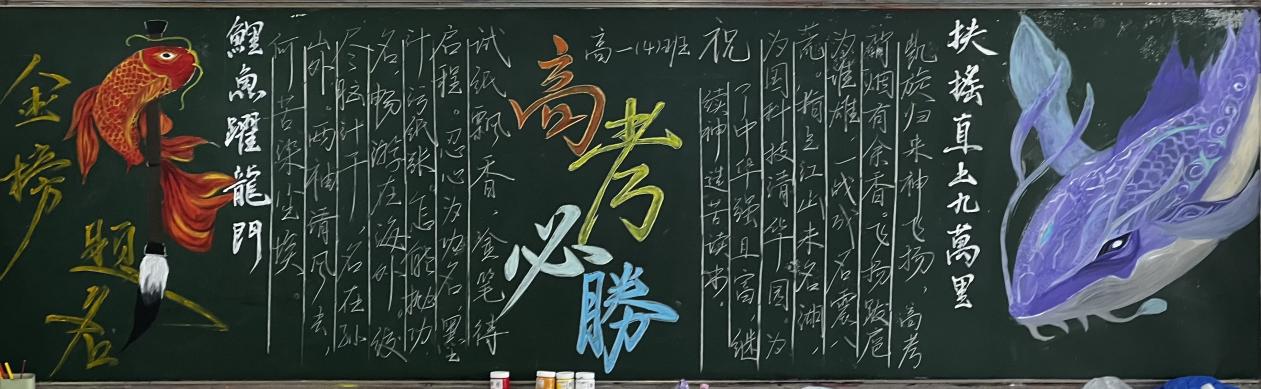 扶摇直上九萬里
凯旋归来神飞扬，高考
硝烟有余香。飞扬跋扈
为谁雄，一战成名震八
荒。指点江山未名湖，
为国科技清华园。为
了中华强且富，继
续神造苦读书。
祝
高一班
高考必勝
试纸飘香，金笔待
启程。忍心为功名，墨
汁污纸张。怎能抛功
名，畅游在海外。绞
尽脑汁干，名在孙
山外。两袖清风去，
何苦染尘埃
鯉魚躍龍門
金榜题名